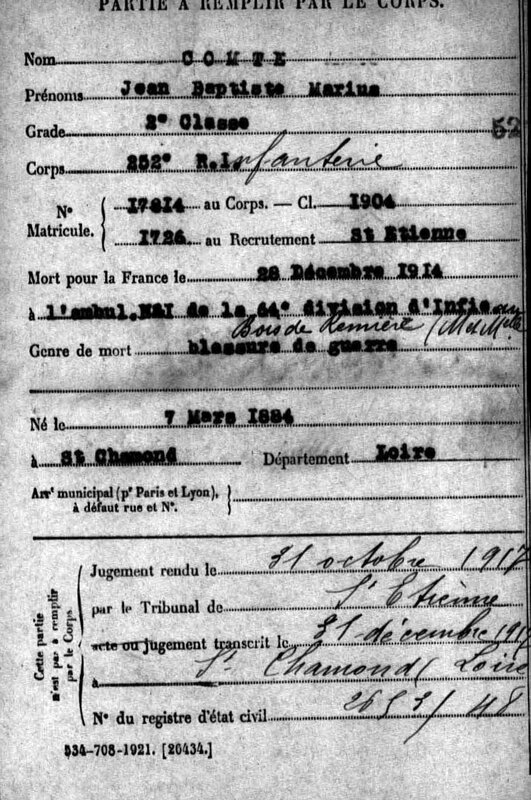 PARTIE À REMPLIR PAR LE CORPS.
Nom COMTE
Prénoms Jean Baptiste Marius
Grade 2e Classe
52
Corps 252e R.Infanterie
N° Matricule. 17814 au Corps. — Cl. 1904
1726 au Recrutement St Etienne
Mort pour la France le 28 Décembre 1914
à l'ambul. N°1 de la 64e division d'Infie au
Bois de Remière (M et Mlle
Genre de mort blessure de guerre
Né le 7 Mars 1884
à St Chamond Département Loire
Arrt municipal (pr Paris et Lyon),
à défaut rue et N°.
Cette partie n'est pas à remplir par le Corps.
Jugement rendu le 31 octobre 1917
par le Tribunal de St Etienne
acte ou jugement transcrit le 31 décembre 1917
à St Chamond (Loire
N° du registre d'état civil 2653/48
534-708-1921. [26434.]